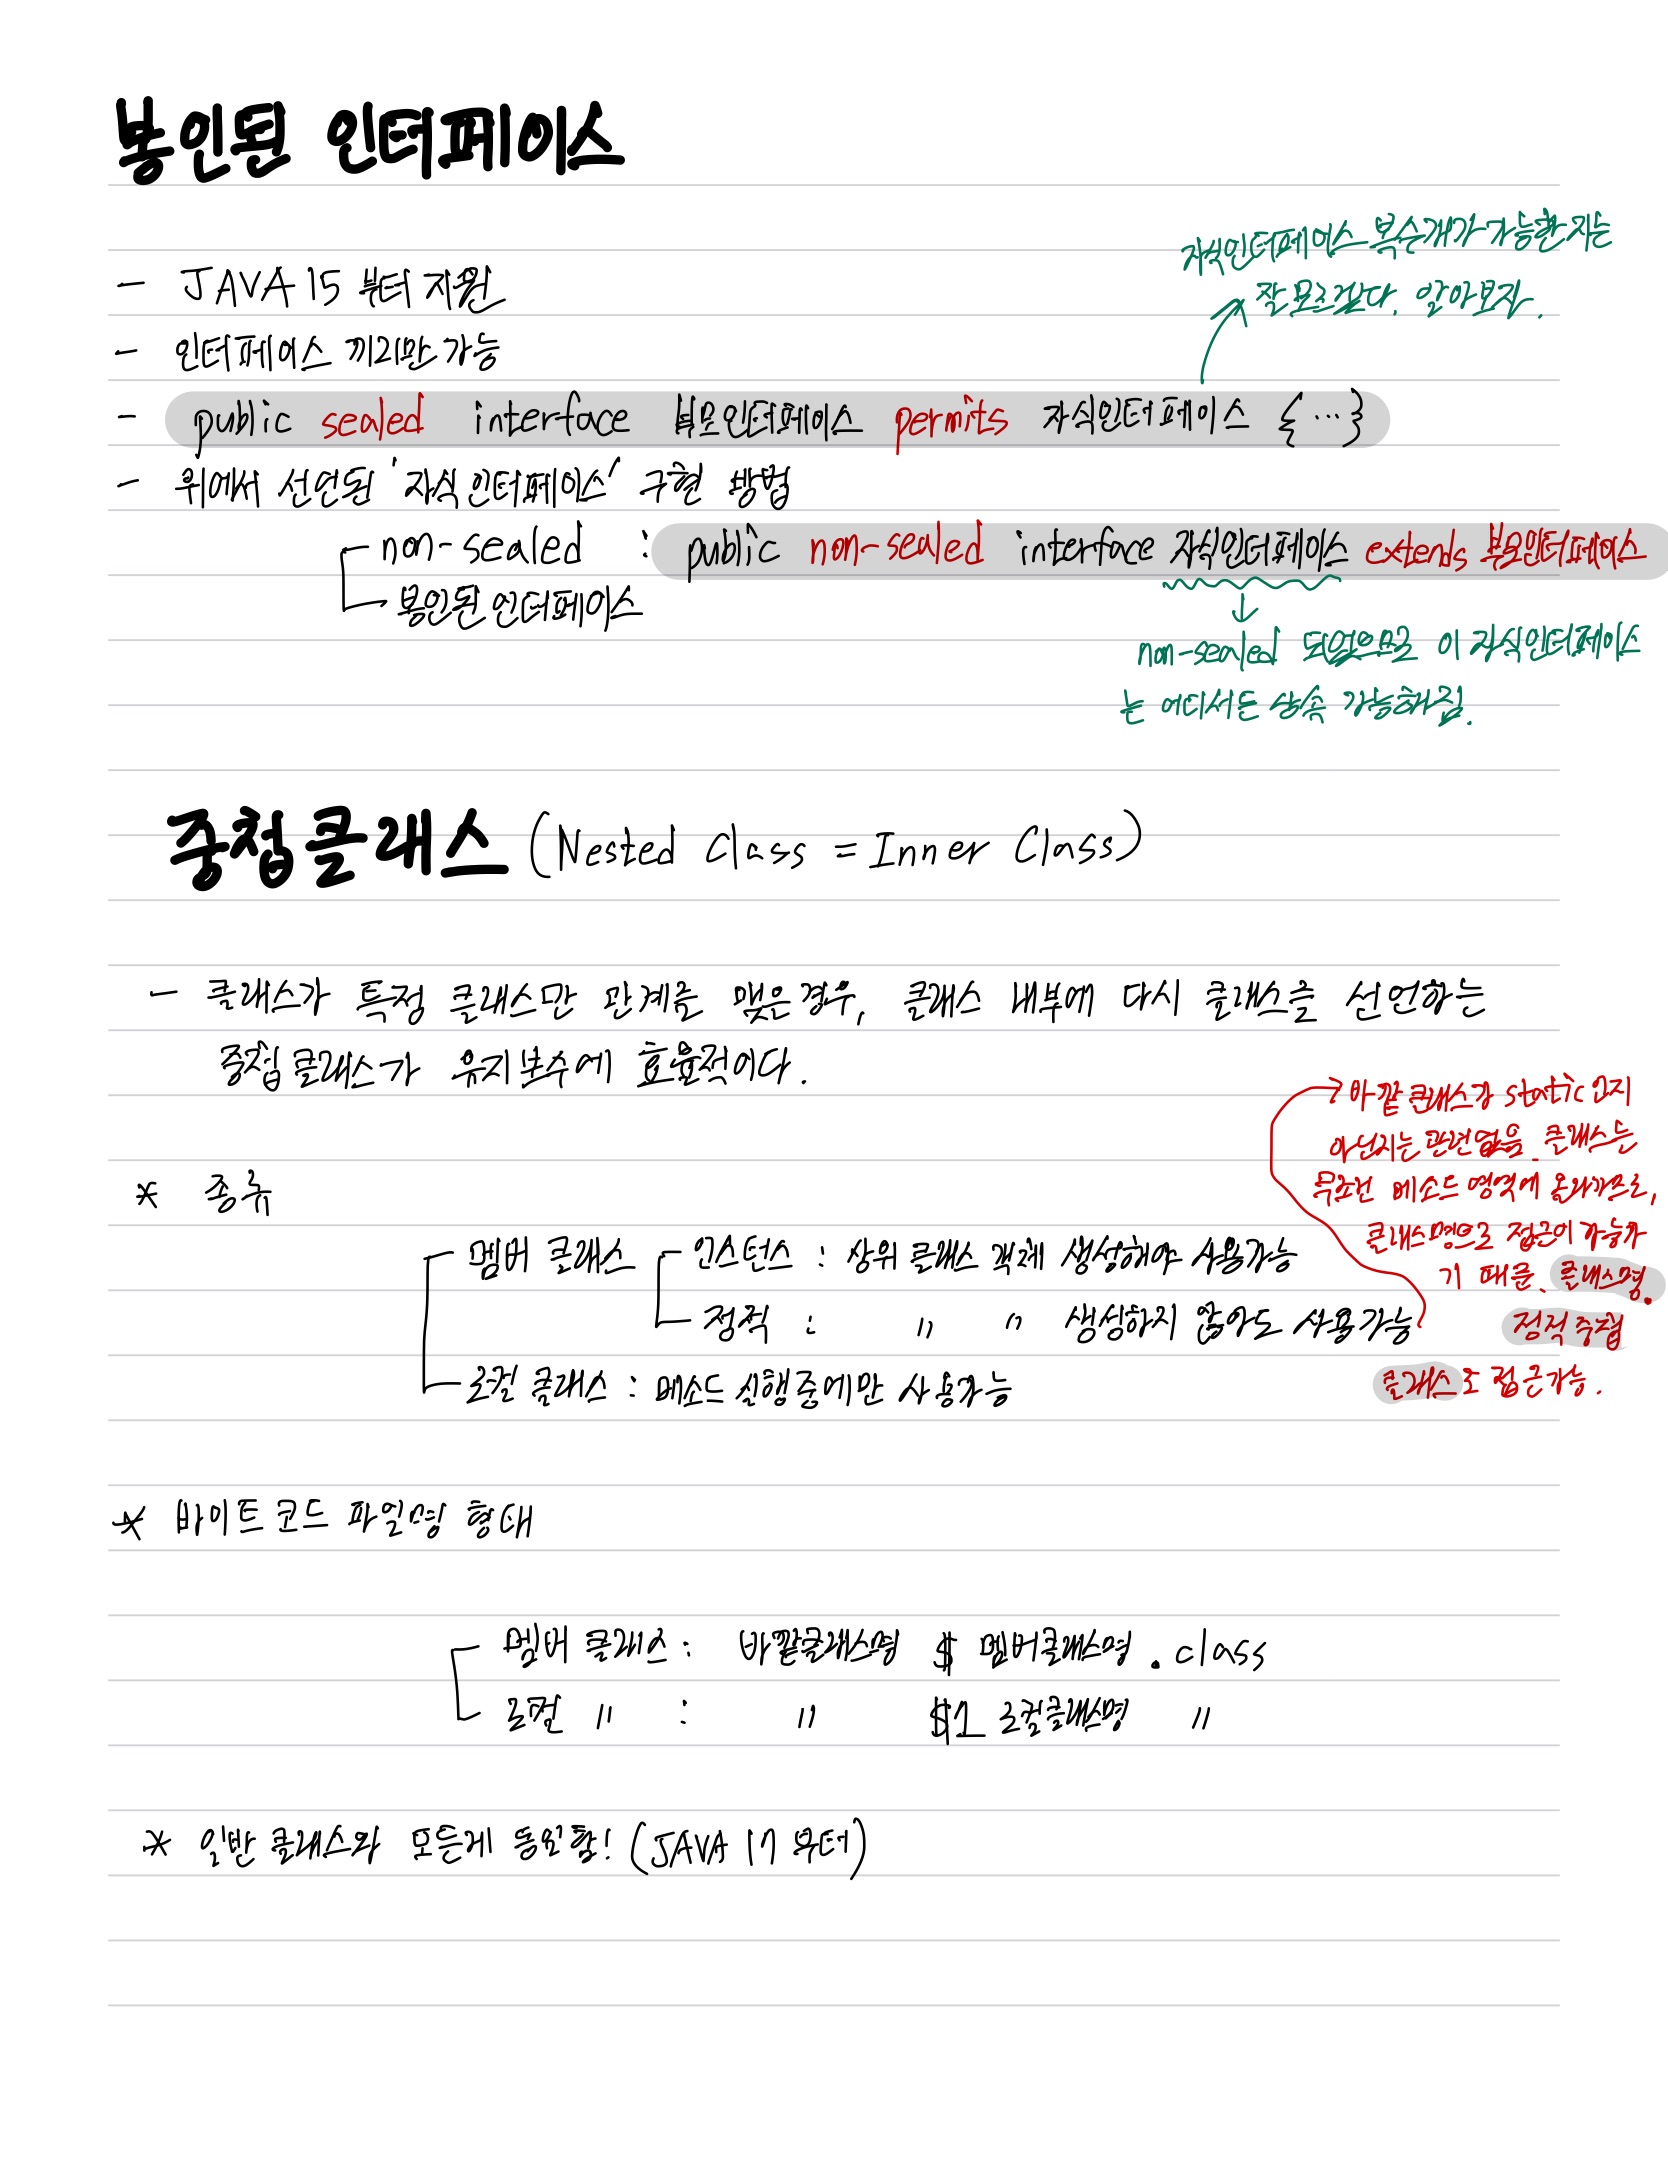 봉인된 인터페이스
자식인터페이스 복수개가 가능한지는
잘 모르겠다. 알아보자.
- JAVA 15 부터 지원
- 인터페이스 끼리만 가능
- public sealed interface 부모인터페이스 permits 자식인터페이스 {…}
- 위에서 선언된 '자식 인터페이스' 구현 방법
non-sealed : public non-sealed interface 자식인터페이스 extends 부모인터페이스
봉인된 인터페이스
non-sealed 되었으므로 이 자식인터페이스
는 어디서든 상속 가능해짐.
중첩클래스 (Nested Class = Inner Class)
- 클래스가 특정 클래스만 관계를 맺은경우, 클래스 내부에 다시 클래스를 선언하는
중첩클래스가 유지보수에 효율적이다.
* 종류
멤버 클래스 인스턴스 : 상위 클래스 객체 생성해야 사용가능
정적 : 〃 〃 생성하지 않아도 사용가능
로컬 클래스 : 메소드 실행중에만 사용가능
바깥 클래스가 static 인지
아닌지는 관련없음. 클래스는
무조건 메소드 영역에 올라가므로,
클래스명으로 접근이 가능하
기 때문. 클래스명.
정적 중첩
클래스로 접근가능.
* 바이트코드 파일명 형태
멤버 클래스 : 바깥클래스명 $ 멤버클래스명 . class
로컬 〃 : 〃 $1 로컬클래스명 〃
* 일반 클래스와 모든게 동일함! (JAVA 17 부터)